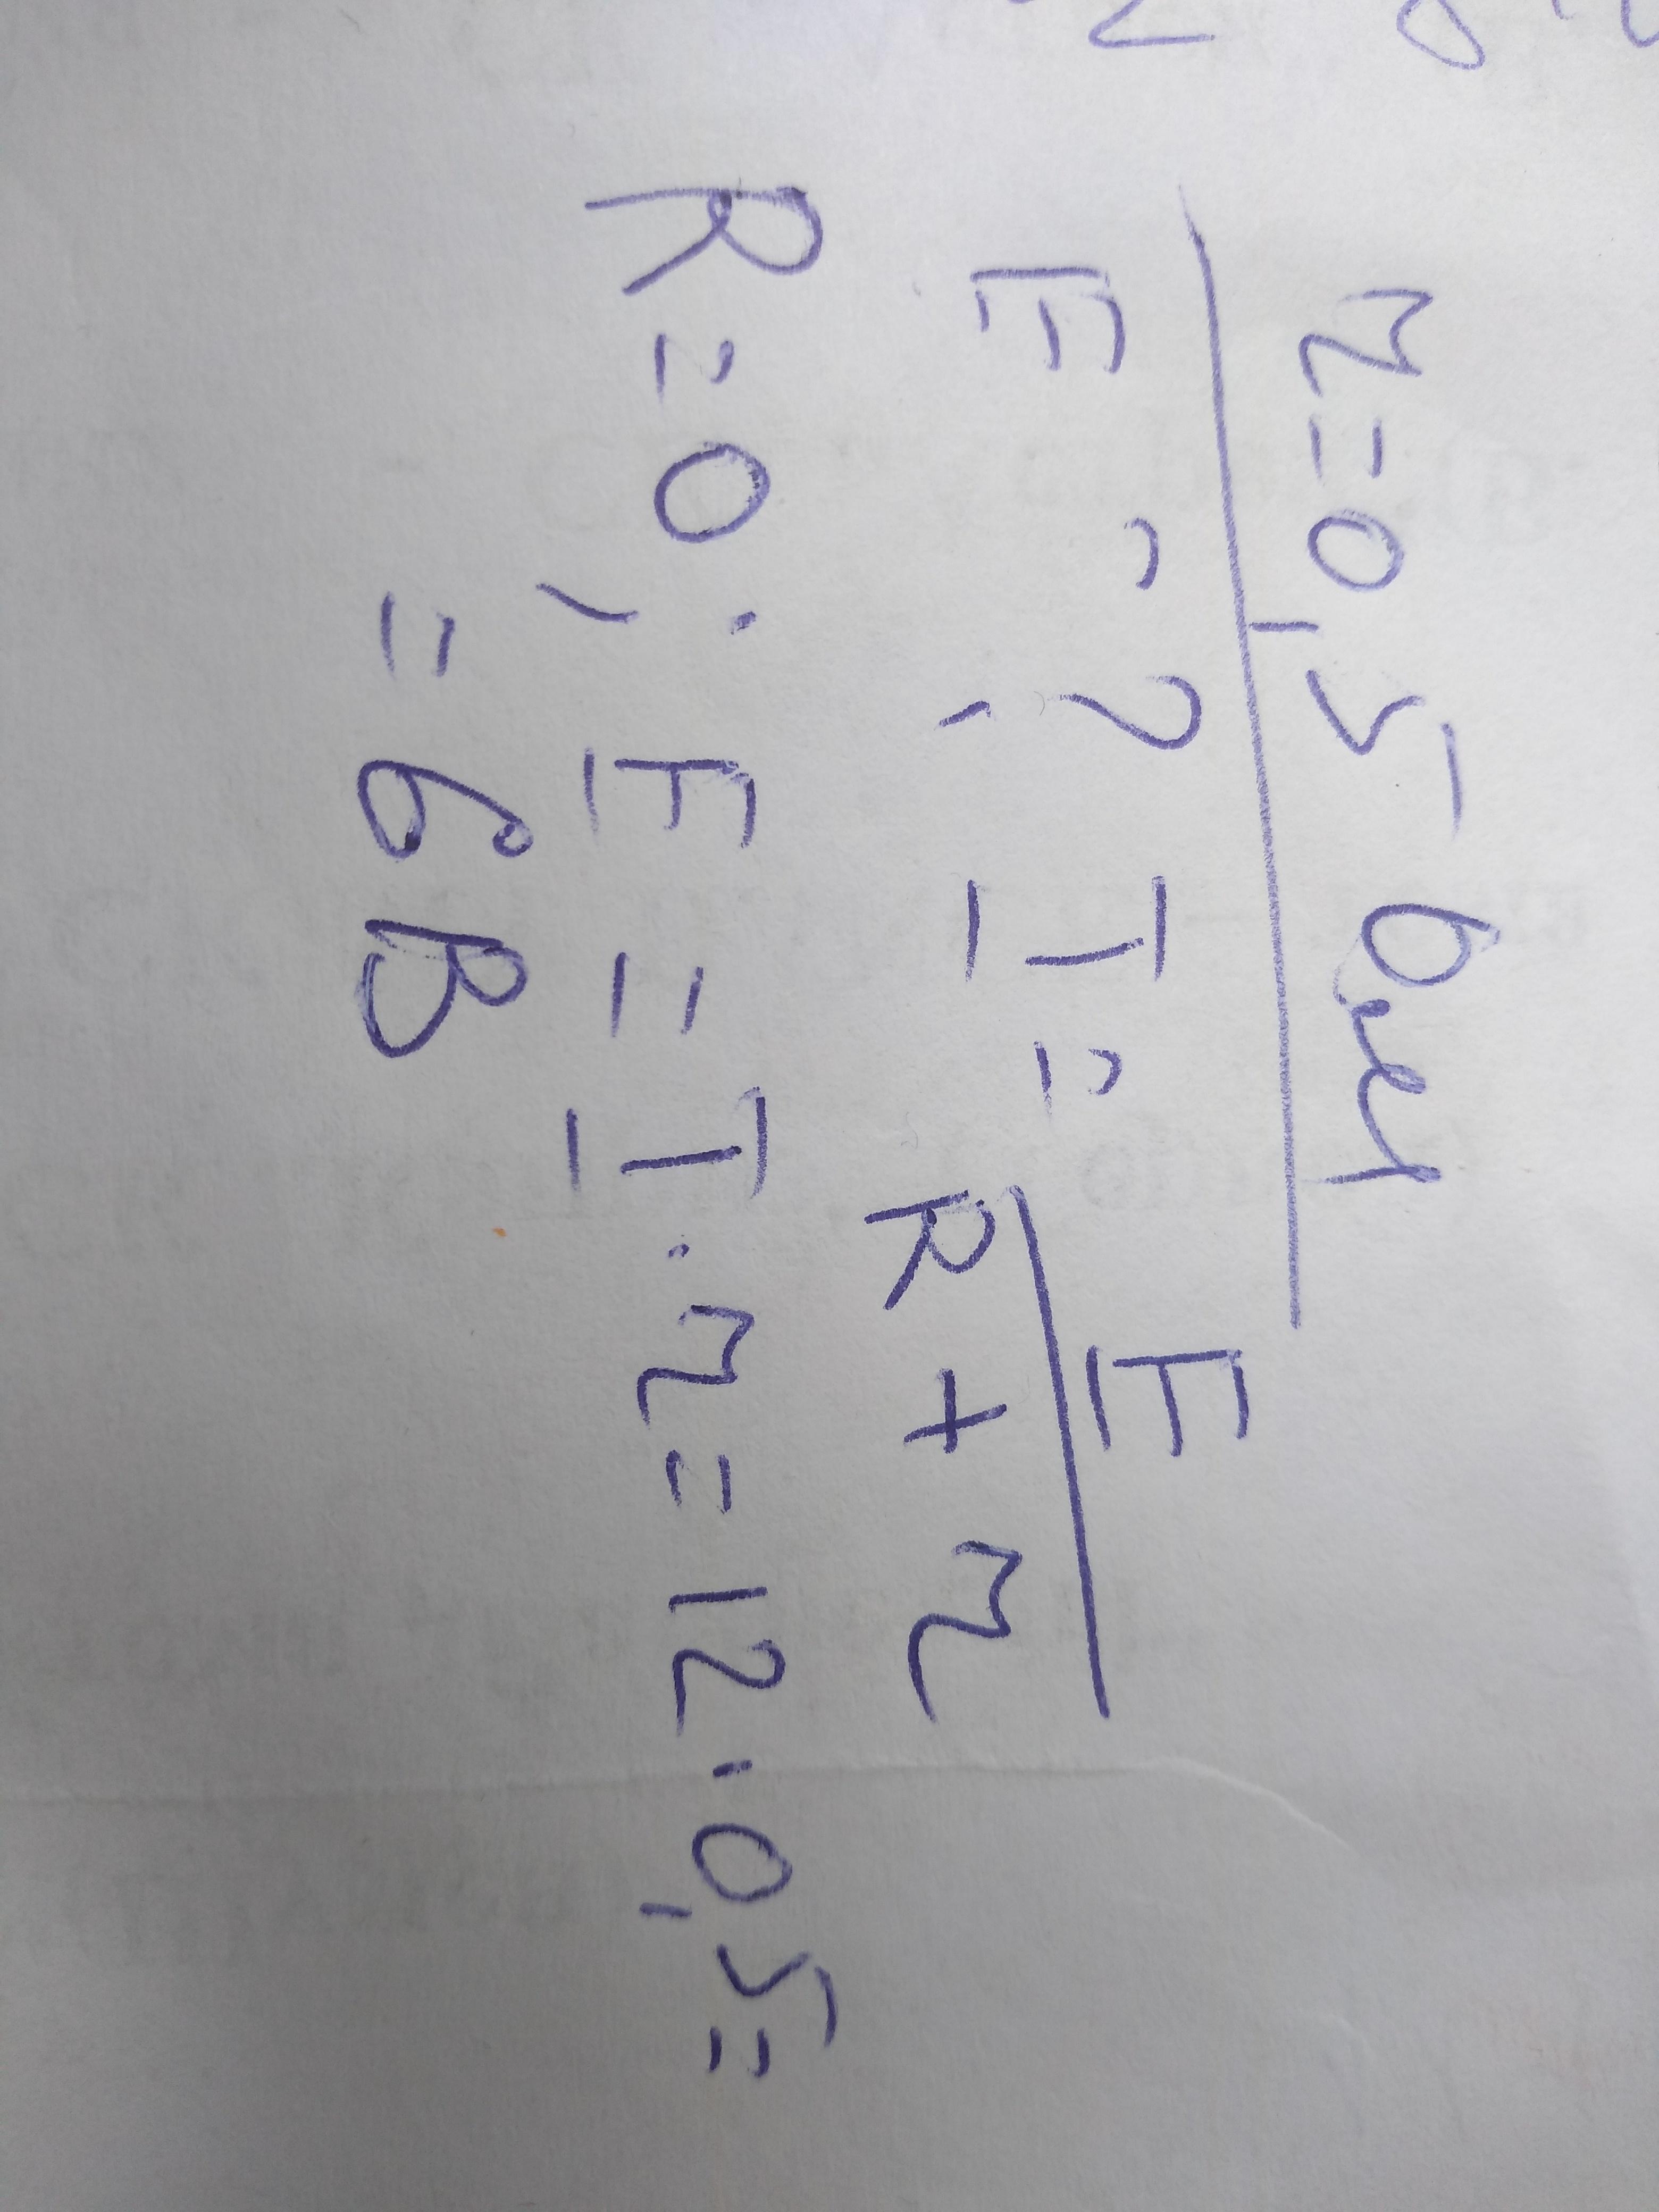 r = 0,5 Ом
E - ? I = E / (R + r)
R = 0; E = I · r = 12 · 0,5 =
= 6 В